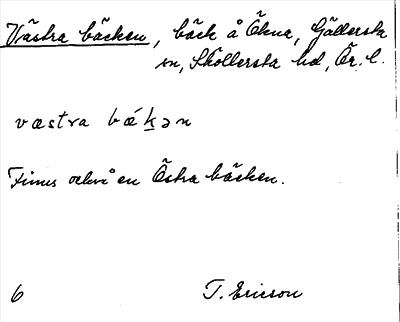 Västra bäcken, bäck å Ökna, Gällersta
sn, Skollersta hd, Ör. l.
væstra bǽḵən
Finns också en Östra bäcken.
6 T. Ericson